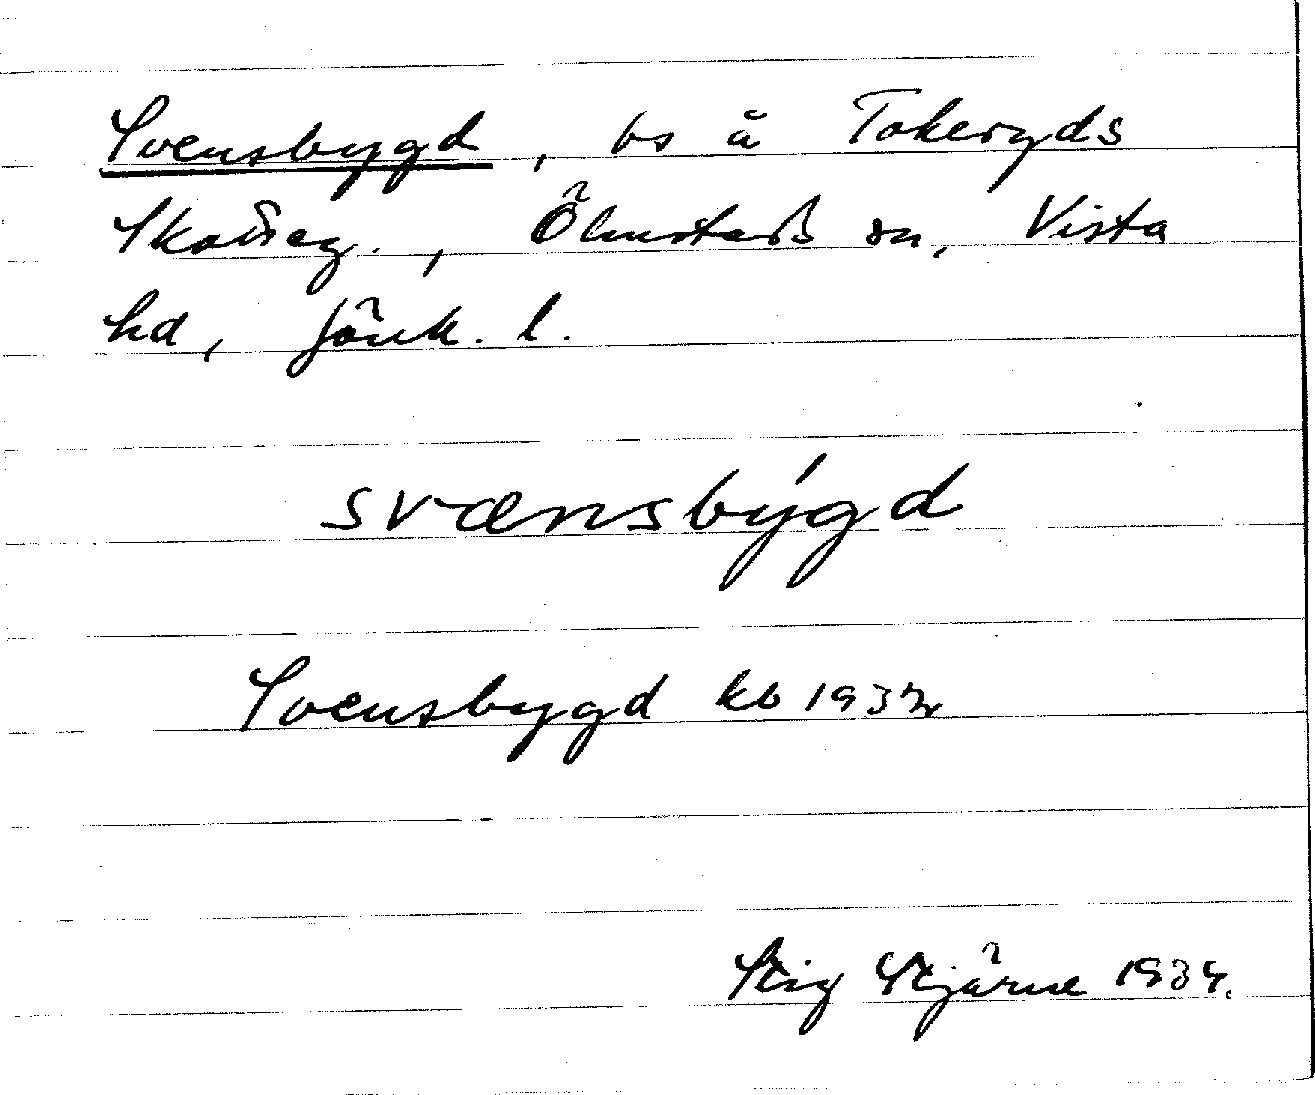 Svensbygd, bs å Tokeryds
Skatteg., Ölmstads sn, Vista
hd, Jönk. l.
svænsbýgd
Svensbygd kb 1932
Stig Stjärne 1934.